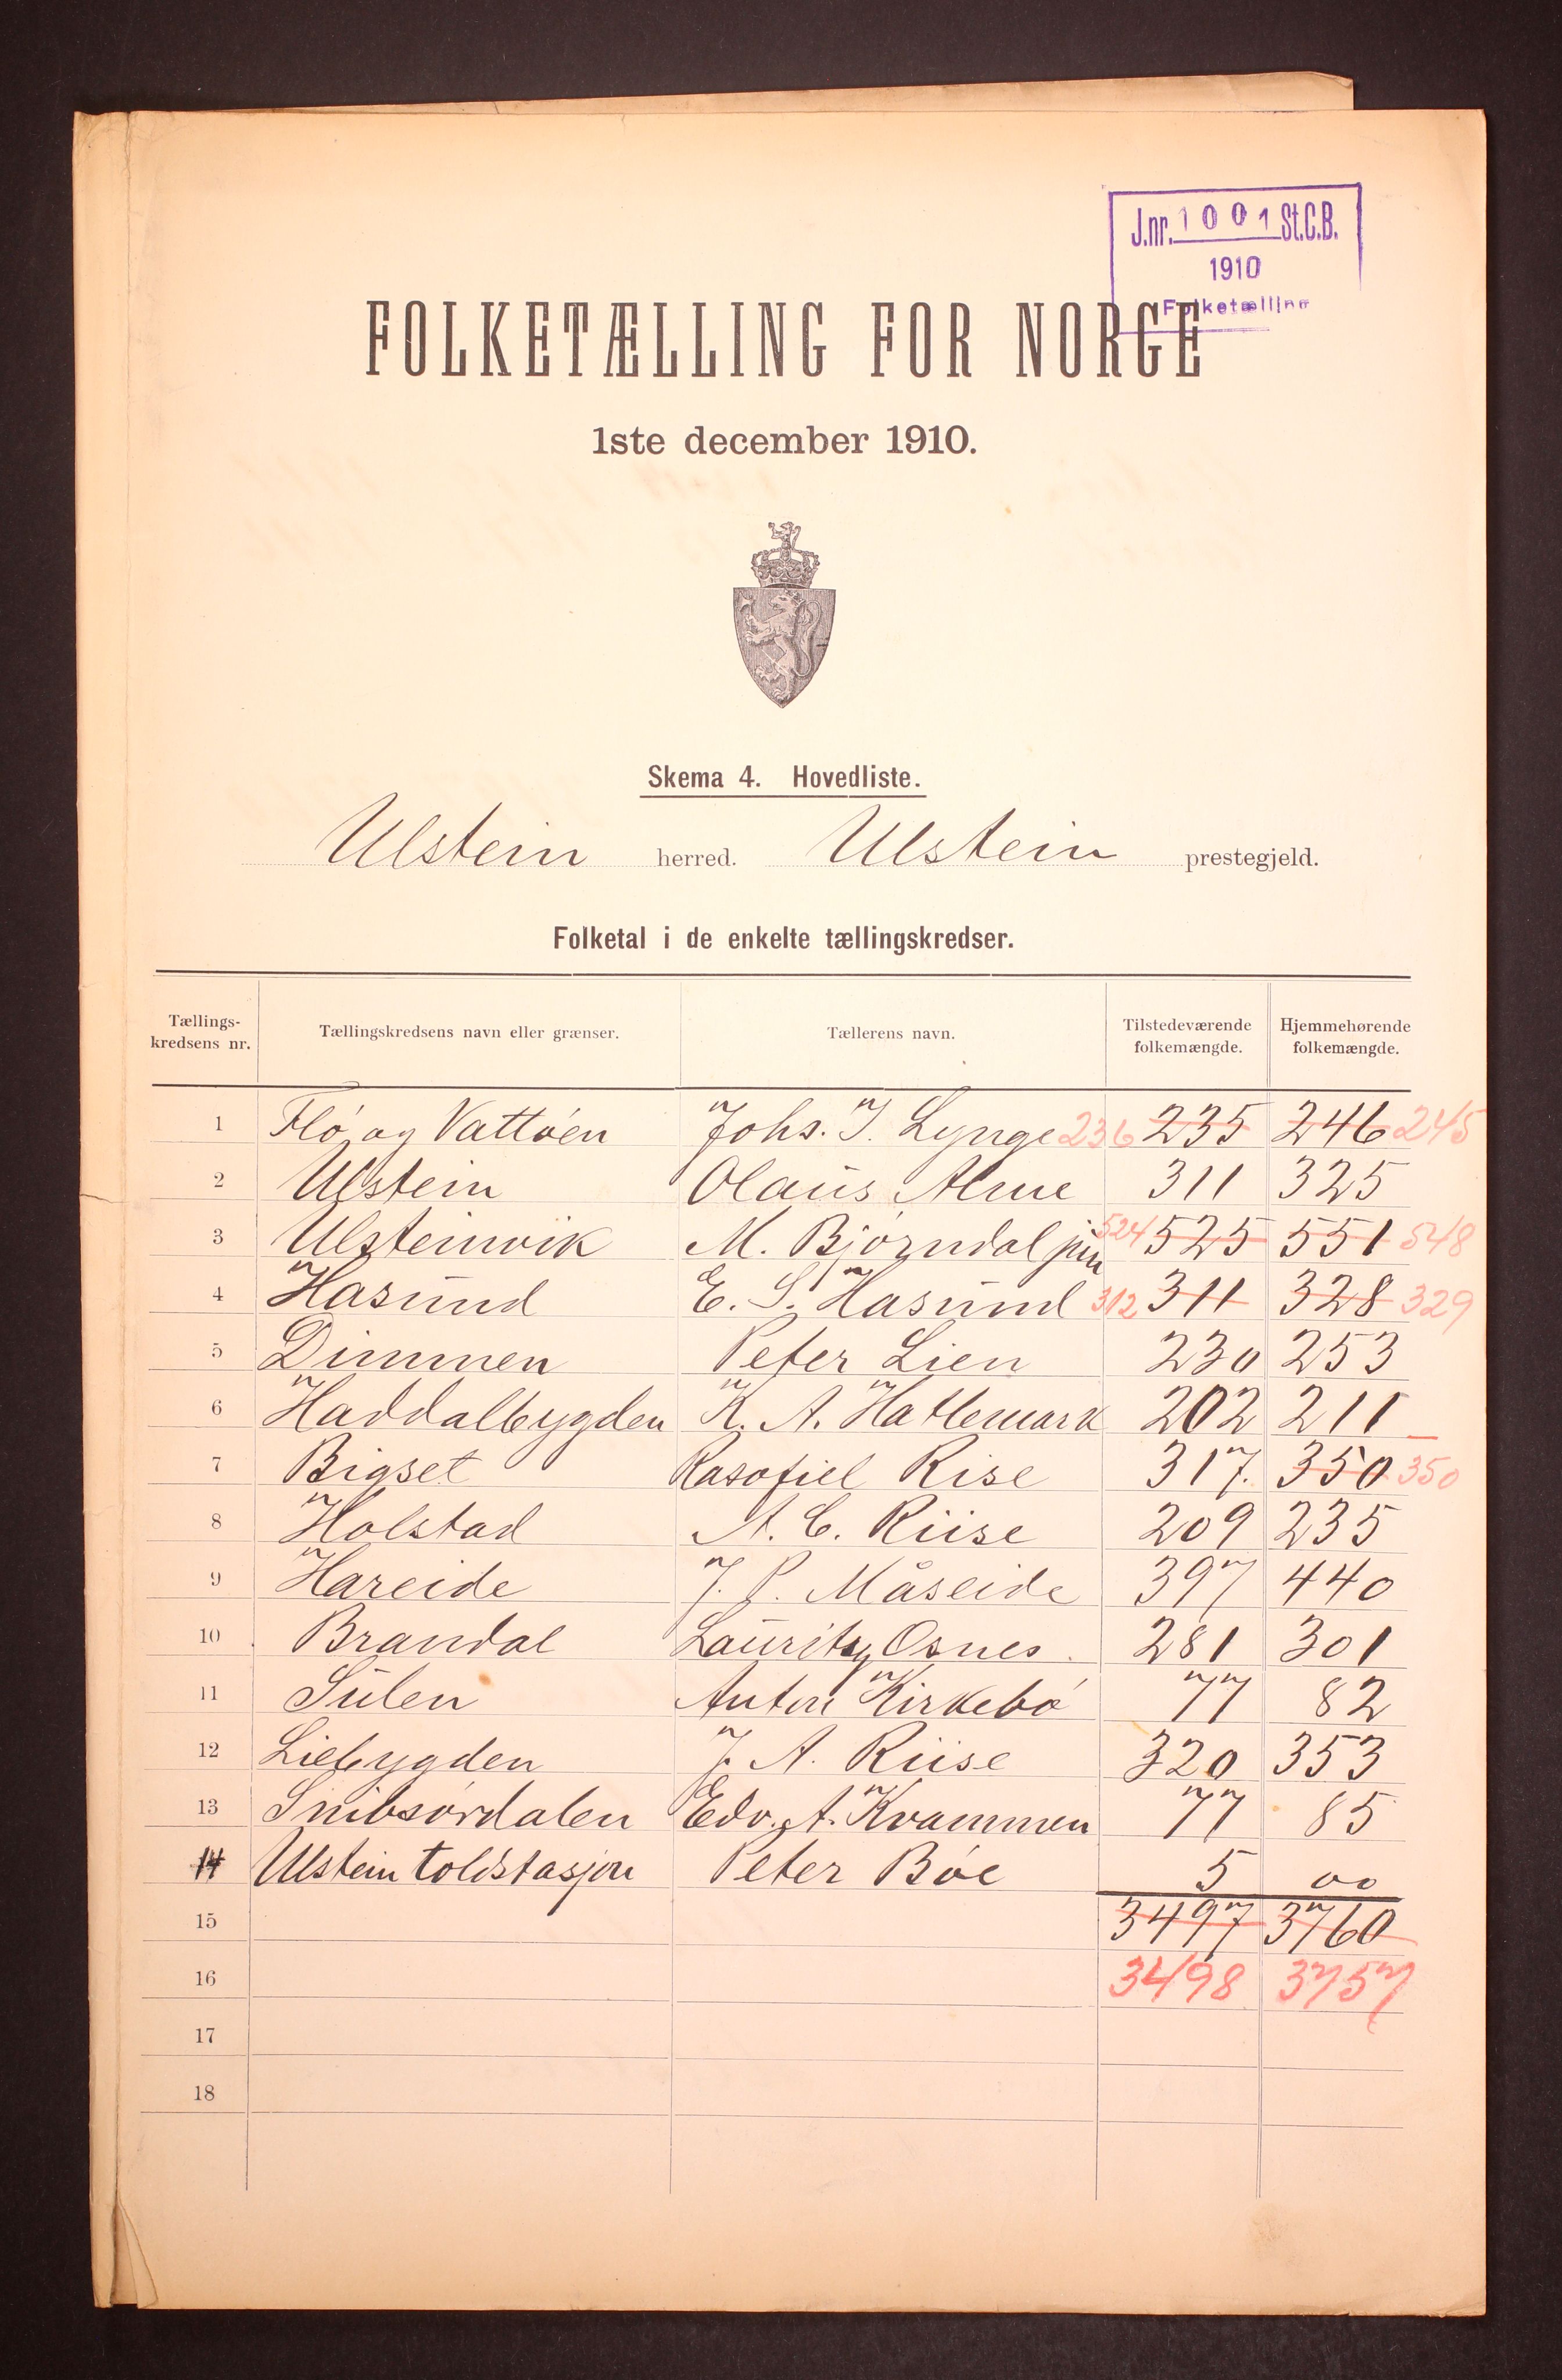 J.nr. 1001 St.C.B.
1910
Folketælling
FOLKETÆLLING FOR NORGE
1ste december 1910.
Skema 4. Hovedliste.
Ulstein herred. Ulstein prestegjeld.
Folketal i de enkelte tællingskredser.
Tællings-kredsens nr. Tællingskredsens navn eller grænser. Tællerens navn. Tilstedeværende folkemængde. Hjemmehørende folkemængde.
1 Flø og Vattøen Johs. J. Lynge 236 235 246 245
2 Ulstein Olaus Alme 311 325
3 Ulsteinvik M. Bjørndal jun 524 525 551 548
4 Hasund E. S. Hasund 312 311 328 329
5 Dimmen Peter Lien 230 253
6 Haddalbygden K. A. Hatlemark 202 211
7 Bigset Rasofiel Rise 317. 350 350
8 Holstad A. C. Riise 209 235
9 Hareide J. P. Måseide 397 440
10 Brandal Lauritz Osnes 281 301
11 Sulen Anton Kirkebø 77 82
12 Liebygden J. A. Riise 320 353
13 Snibsørdalen Edv. A. Kvammen 77 85
14 Ulstein toldstasjon Peter Bøe 5 00
15 3497 3760
16 3498 3757
17
18